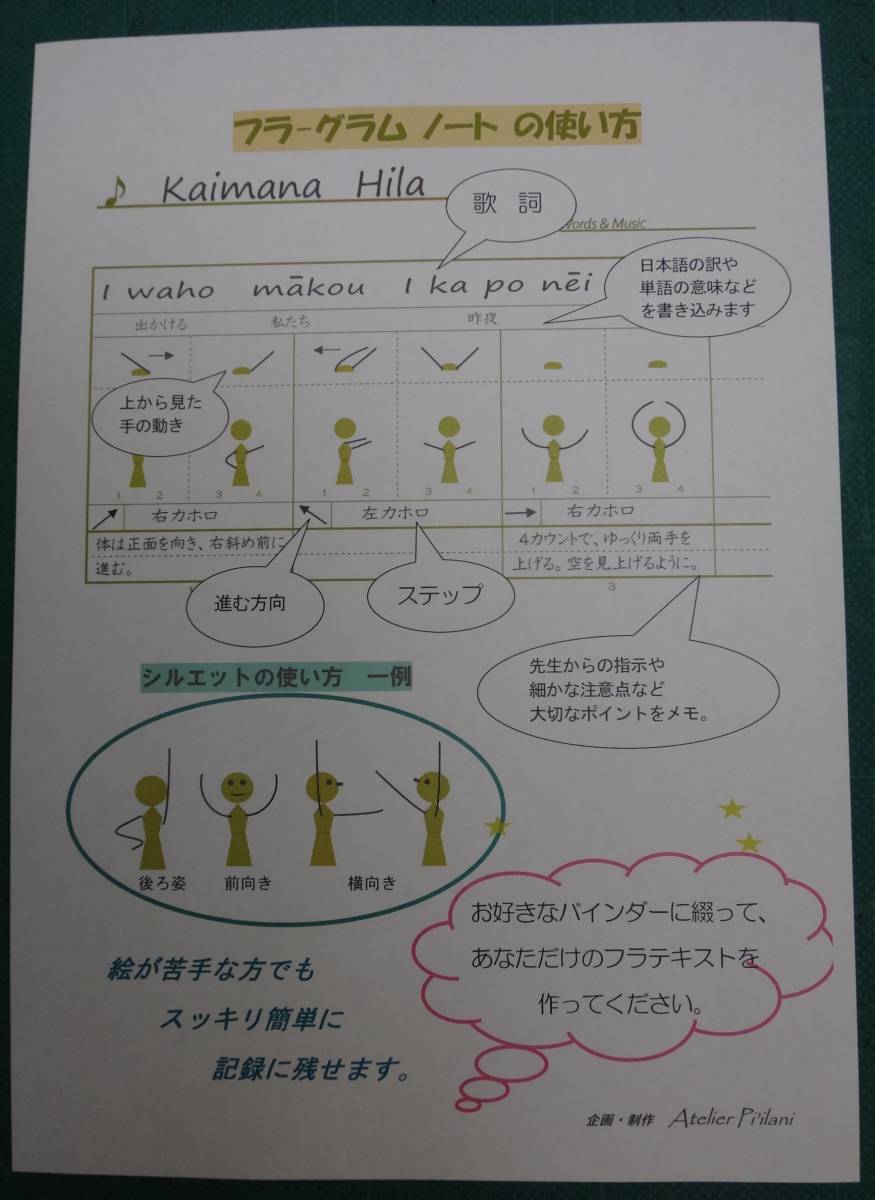 フラ-グラム ノート の使い方
♪ Kaimana Hila
歌 詞
ords & Music
I waho mākou I ka po nēi
日本語の訳や
単語の意味など
を書き込みます
出かける 私たち 昨夜
上から見た
手の動き
1 2 3 4 1 2 3 4 1 2 3 4
右カホロ 左カホロ 右カホロ
体は正面を向き、右斜め前に
進む。
4カウントで、ゆっくり両手を
上げる。空を見上げるように。
3
進む方向
ステップ
先生からの指示や
細かな注意点など
大切なポイントをメモ。
シルエットの使い方 一例
後ろ姿 前向き 横向き
お好きなバインダーに綴って、
あなただけのフラテキストを
作ってください。
絵が苦手な方でも
スッキリ簡単に
記録に残せます。
企画・制作 Atelier Pi'ilani